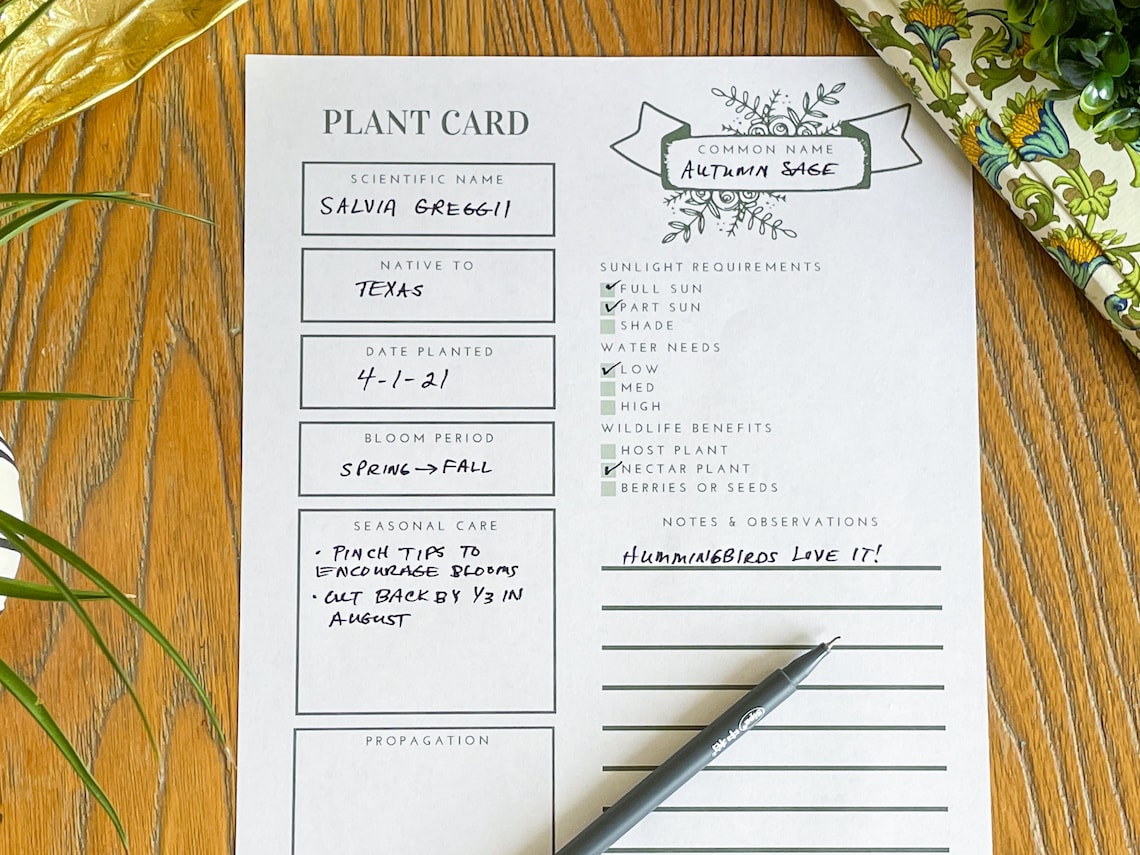 PLANT CARD
SCIENTIFIC NAME
SALVIA GREGGII
NATIVE TO
TEXAS
DATE PLANTED
4-1-21
BLOOM PERIOD
SPRING → FALL
SEASONAL CARE
· PINCH TIPS TO
ENCOURAGE BLOOMS
· CUT BACK BY 1/3 IN
AUGUST
PROPAGATION
COMMON NAME
AUTUMN SAGE
SUNLIGHT REQUIREMENTS
FULL SUN
PART SUN
SHADE
WATER NEEDS
LOW
MED
HIGH
WILDLIFE BENEFITS
HOST PLANT
NECTAR PLANT
BERRIES OR SEEDS
NOTES & OBSERVATIONS
HUMMINGBIRDS LOVE IT!